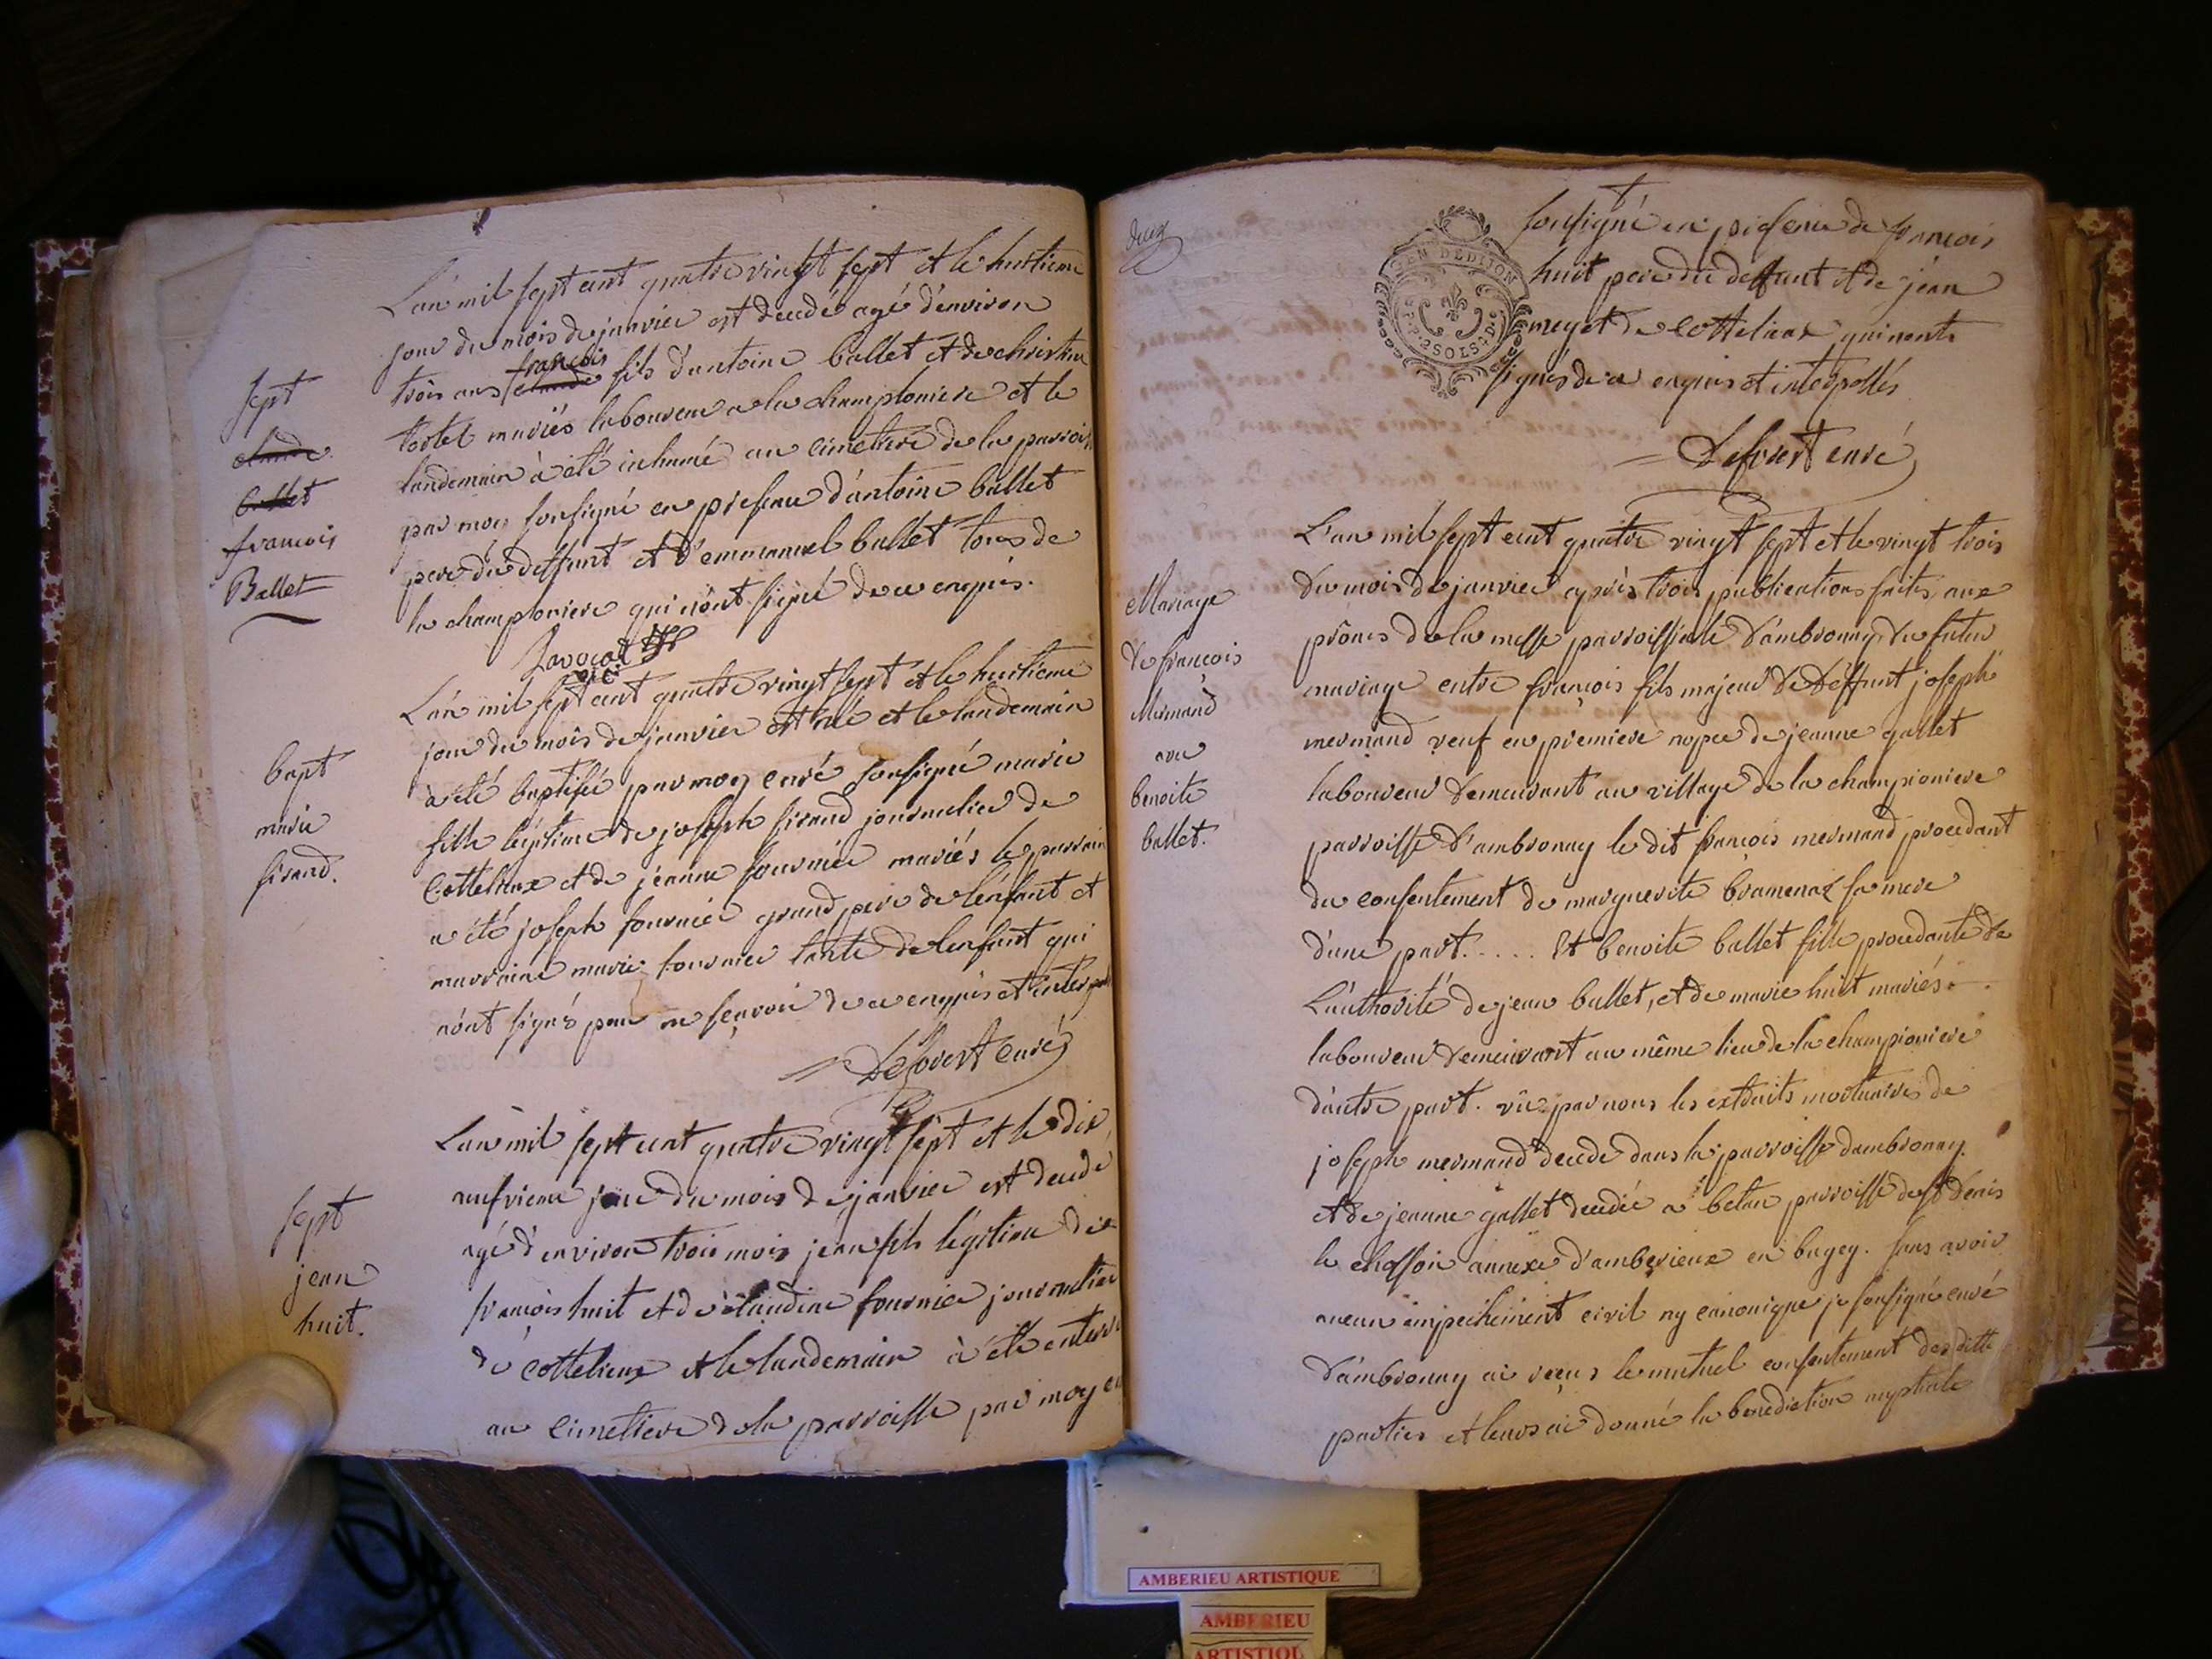 L'an mil sept cent quatre vingt sept et le huitieme
jour du mois de janvier est decedé agé d'environ
françois
trois ans claude fils d'antoine ballet et de christine
tortel mariés laboureur a la championiere et le
landemain à été inhumé au cimetiere de la parrois
par moy sousigné en presence d'antoine ballet
pere du deffunt et d'emmanuel ballet tous de
la championiere qui n'ont signé de ce enquis.
sept
claude
ballet
françois
Ballet
L'an mil sept cent quatre vingt sept et le huitieme
jour du mois de janvier est né et le landemain
à été baptisée par moy curé sousigné marie
fille légitime de joseph sirand journalier de
Cottelieux et de jéanne fournier mariés le parrain
a été joseph fournier grand pere de l'enfant et
marraine marie fournier tante de l'enfant qui
n'ont signés pour ne sçavoir de ce enquis et interpell
Deforest curé
bapt
marie
sirand.
L'an mil sept cent quatre vingt sept et le dix
neufvieme jour du mois de janvier est decedé
agé d'environ trois mois jean fils légitime de
françois huit et de claudine fournier journalier
de cottelieux et le landemain à été enterré
au cimetiere de la parroisse par moy cu
sept
jean
huit.
deux
GEN DE DIJON
sousigné en presence de françois
huit pere du deffunt et de jean
meyet de Cottelieux qui n'onts
signés de ce enquis et interpellés
Deforest curé
L'an mil sept cent quatre vingt sept et le vingt trois
du mois de janvier après trois publications faites aux
prônes de la messe parroissiale d'ambronay du futur
mariage entre françois fils majeur de deffunt joseph
mermand veuf en premiere nopce de jeanne gallet
laboureur demeurant au village de la championiere
parroisse d'ambronay le dit françois mermand procedant
du consentement de marguerite bramenaz sa mere
d'une part..... Et benoite ballet fille procedante de
L'authorité de jean ballet, et de marie huit mariés
laboureur demeurant au même lieu de la championiere
d'autre part. vû par nous les extraits mortuaires de
joseph mermand decedé dans la parroisse dambronay.
et de jeanne gallet decedée a betan parroisse de st denis
le chosson annexe d'amberieux en bugey. sans avoir
aucun empechement civil ny canonique je sousigné curé
d'ambronay ai reçus le mutuel consentement des dittes
parties et leurs ai donné la benediction nuptiale
Mariage
de françois
Mermand
avec
benoite
ballet.
AMBERIEU ARTISTIQUE
AMBERIEU
ARTISTIQU